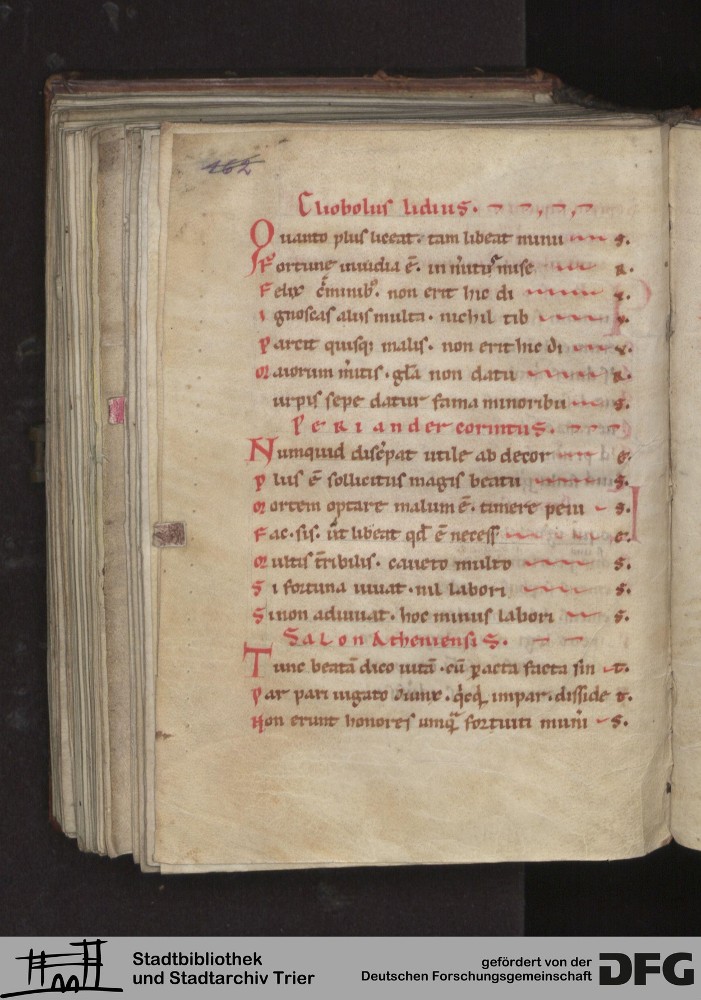 462
Cliobolus lidius.
Quanto plus liceat. tam libeat minu s.
Fortune inuidia ē. in miser r.
Felix criminibꝰ. non erit hic di u.
Ignoscas aliis multa. nichil tib i.
Parcit quisqꝫ malis. non erit hic di u.
Maiorum m̄itis. gl̄a non datu r.
urpis sepe datur fama minoribu s.
Periander corintus.
Numquid discrepat utile ab decor e.
Plus ē sollicitus magis beatu s.
Mortem optare malum ē. timere peiu s.
Fac. sis. ut libeat qd̄ ē necess e.
Multis t̄ribilis. caueto multo s.
Si fortuna iuuat. nil labori s.
Si non adiuuat. hoc minus labori s.
Salon Atheniensis.
Tunc beatā dico uitā. cū peracta facta sin t.
Par pari iugato coniunx. qicqd impar. disside t.
Non erunt honores umqͣ fortuiti muni s.
Stadtbibliothek
und Stadtarchiv Trier
gefördert von der
Deutschen Forschungsgemeinschaft
DFG